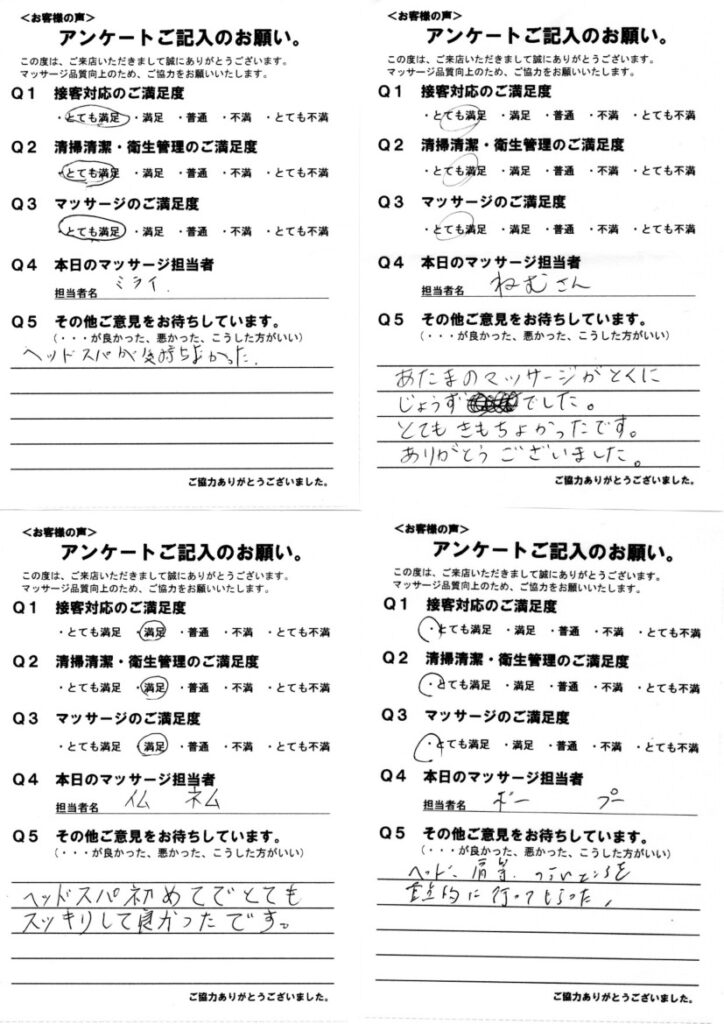 <お客様の声>
アンケートご記入のお願い。
この度は、ご来店いただきまして誠にありがとうございます。
マッサージ品質向上のため、ご協力をお願いいたします。
Q1 接客対応のご満足度
・とても満足 ・満足 ・普通 ・不満 ・とても不満
Q2 清掃清潔・衛生管理のご満足度
・とても満足 ・満足 ・普通 ・不満 ・とても不満
Q3 マッサージのご満足度
・とても満足 ・満足 ・普通 ・不満 ・とても不満
Q4 本日のマッサージ担当者
担当者名 ミライ.
Q5 その他ご意見をお待ちしています。
(・・・が良かった、悪かった、こうした方がいい)
ヘッドスパが気持ちよかった.
ご協力ありがとうございました。
<お客様の声>
アンケートご記入のお願い。
この度は、ご来店いただきまして誠にありがとうございます。
マッサージ品質向上のため、ご協力をお願いいたします。
Q1 接客対応のご満足度
・とても満足 ・満足 ・普通 ・不満 ・とても不満
Q2 清掃清潔・衛生管理のご満足度
・とても満足 ・満足 ・普通 ・不満 ・とても不満
Q3 マッサージのご満足度
・とても満足 ・満足 ・普通 ・不満 ・とても不満
Q4 本日のマッサージ担当者
担当者名 ねむさん
Q5 その他ご意見をお待ちしています。
(・・・が良かった、悪かった、こうした方がいい)
あたまのマッサージがとくに
じょうず でした。
とても きもちよかったです。
ありがとう ございました。
ご協力ありがとうございました。
<お客様の声>
アンケートご記入のお願い。
この度は、ご来店いただきまして誠にありがとうございます。
マッサージ品質向上のため、ご協力をお願いいたします。
Q1 接客対応のご満足度
・とても満足 ・満足 ・普通 ・不満 ・とても不満
Q2 清掃清潔・衛生管理のご満足度
・とても満足 ・満足 ・普通 ・不満 ・とても不満
Q3 マッサージのご満足度
・とても満足 ・満足 ・普通 ・不満 ・とても不満
Q4 本日のマッサージ担当者
担当者名 ネム
Q5 その他ご意見をお待ちしています。
(・・・が良かった、悪かった、こうした方がいい)
ヘッドスパ初めてでとても
スッキリして良かったです。
ご協力ありがとうございました。
<お客様の声>
アンケートご記入のお願い。
この度は、ご来店いただきまして誠にありがとうございます。
マッサージ品質向上のため、ご協力をお願いいたします。
Q1 接客対応のご満足度
・とても満足 ・満足 ・普通 ・不満 ・とても不満
Q2 清掃清潔・衛生管理のご満足度
・とても満足 ・満足 ・普通 ・不満 ・とても不満
Q3 マッサージのご満足度
・とても満足 ・満足 ・普通 ・不満 ・とても不満
Q4 本日のマッサージ担当者
担当者名 ボー プー
Q5 その他ご意見をお待ちしています。
(・・・が良かった、悪かった、こうした方がいい)
ヘッド、肩等、 ところを
重点的に行ってもらった。
ご協力ありがとうございました。